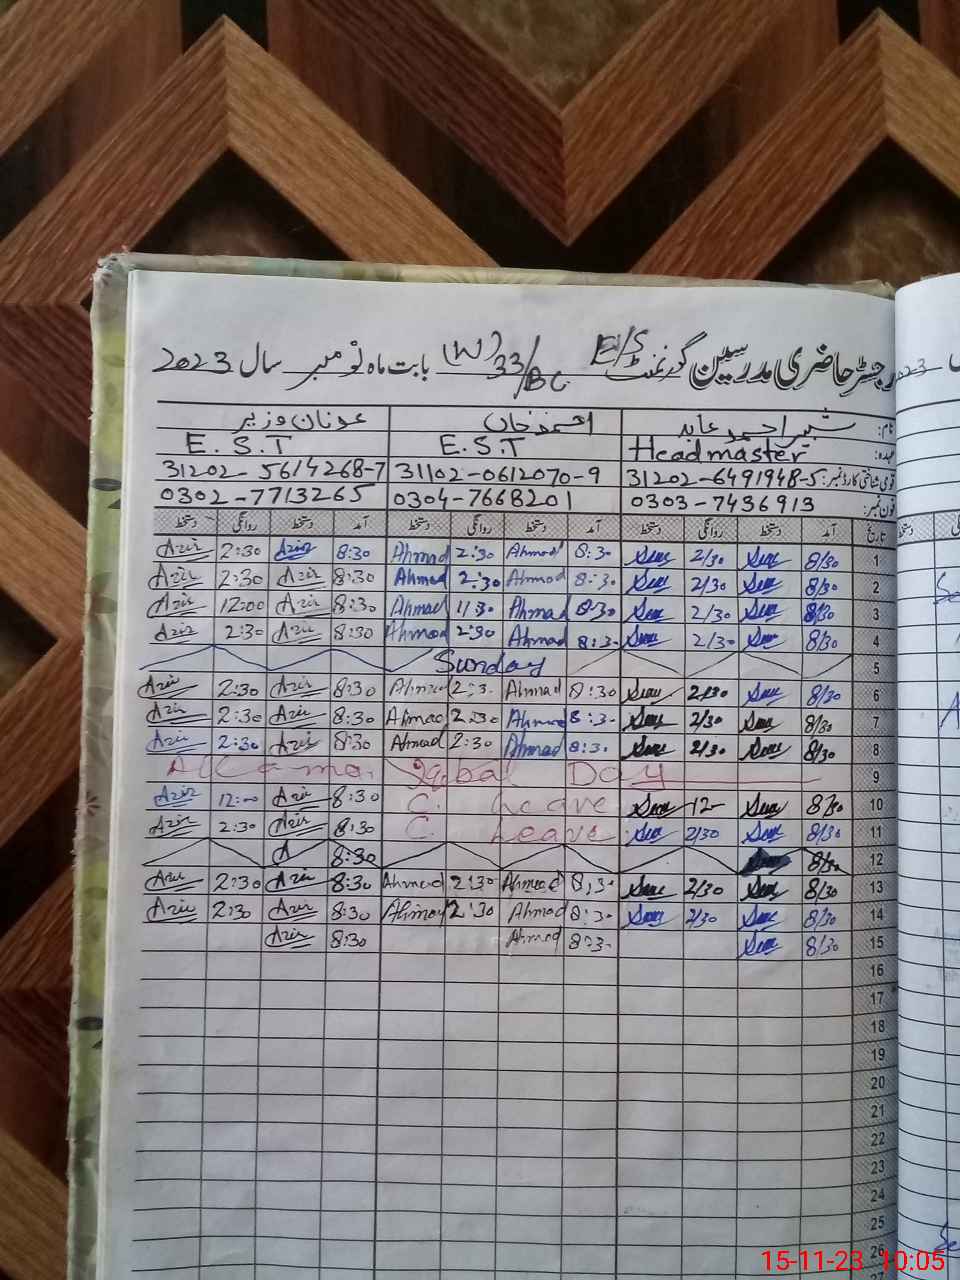 رجسٹر حاضری مدرسین گورنمنٹ E/S 33/BC (W) بابت ماہ نومبر سال 2023
نام: شبیر احمد عابد احمد خان عدنان وزیر
عہدہ: Headmaster E.S.T E.S.T
قومی شناختی کارڈ نمبر: 31202-6491948-5 31102-0612070-9 31202-5614268-7
فون نمبر: 0303-7436913 0304-7668201 0302-7713265
تاریخ آمد دستخط روانگی دستخط آمد دستخط روانگی دستخط آمد دستخط روانگی دستخط
1 8/30 2/30 8:30 Ahmad 2:30 Ahmad 8:30 Azir 2:30 Azir
2 8/30 2/30 8:30 Ahmad 2:30 Ahmad 8:30 Azir 2:30 Azir
3 8/30 2/30 8:30 Ahmad 11:30 Ahmad 8:30 Azir 12:00 Azir
4 8/30 2/30 8:30 Ahmad 2:30 Ahmad 8:30 Azir 2:30 Azir
5 Sunday
6 8/30 2/30 8:30 Ahmad 2:30 Ahmad 8:30 Azir 2:30 Azir
7 8/30 2/30 8:30 Ahmad 2:30 Ahmad 8:30 Azir 2:30 Azir
8 8/30 2/30 8:30 Ahmad 2:30 Ahmad 8:30 Azir 2:30 Azir
9 Allama Iqbal Day
10 8/30 12- C. Leave 8:30 Azir 12:00 Azir
11 8/30 2/30 C. Leave 8:30 Azir 2:30 Azir
12 8/30 8:30 A
13 8/30 2/30 8:30 Ahmad 2:30 Ahmad 8:30 Azir 2:30 Azir
14 8/30 2/30 8:30 Ahmad 2:30 Ahmad 8:30 Azir 2:30 Azir
15 8/30 8:30 Ahmad 8:30 Azir
16
17
18
19
20
21
22
23
24
25
26
15-11-23 10:05